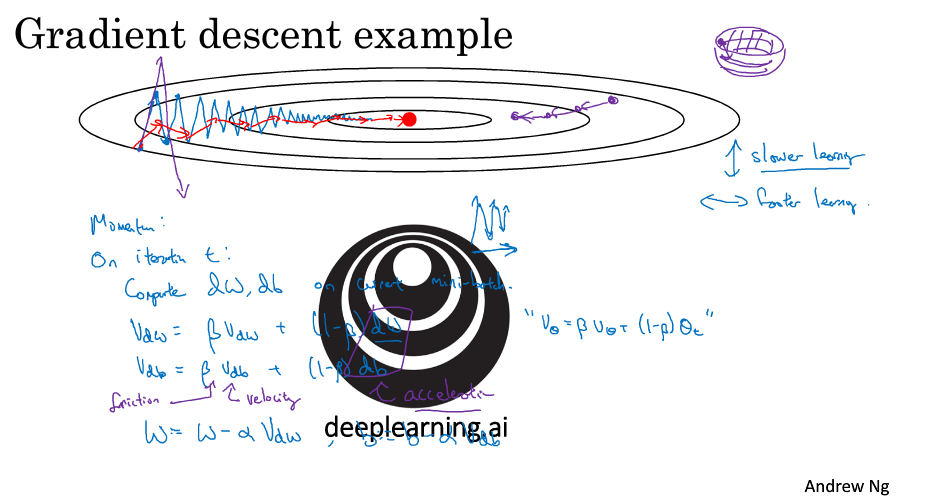 Gradient descent example
↕ slower learning
↔ faster learning.
Momentum:
On iteration t:
Compute dw, db on current mini-batch.
Vdw = β Vdw + (1-β) dw
"Vθ = β Vθ + (1-β) θt"
Vdb = β Vdb + (1-β) db
friction velocity acceleration
w = w - α Vdw , b = b - α Vdb
deeplearning.ai
Andrew Ng